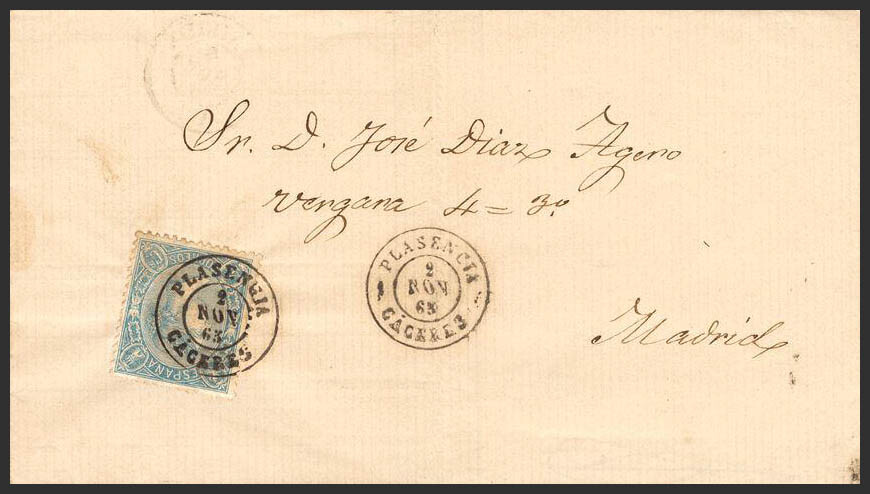 Sr. D. José Diaz Agero
Vergara 4 = 3º
Madrid
PLASENCIA
2
NOV
65
CÁCERES
PLASENCIA
2
NOV
65
CÁCERES
CORREOS
ESPAÑA